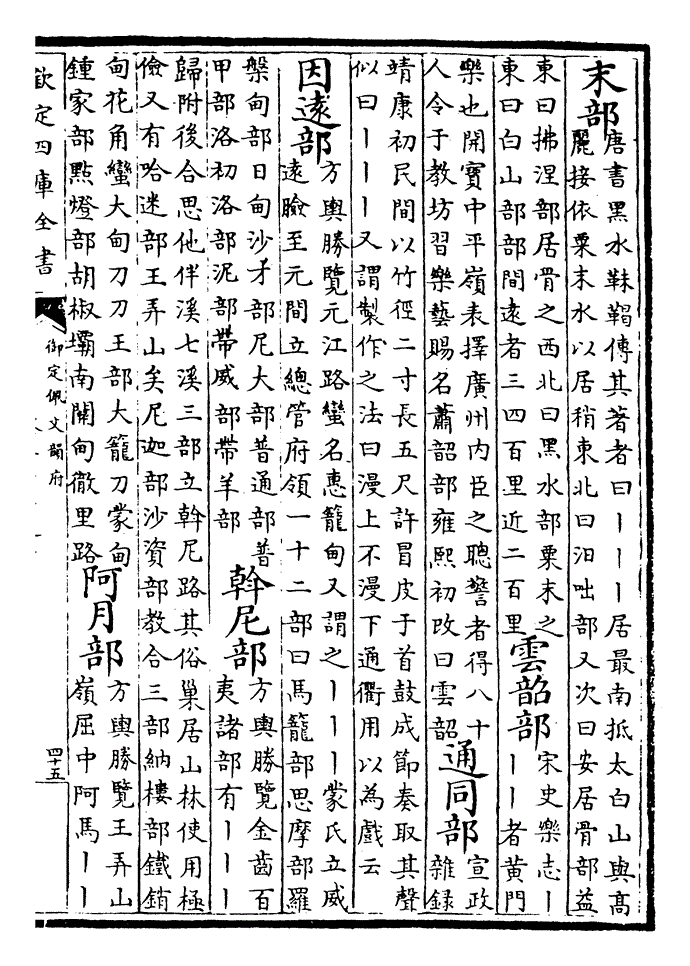 末部
唐書黑水靺鞨傳其著者曰丨丨丨居最南抵太白山與髙
麗接依粟末水以居稍東北曰汨咄部又次曰安居骨部益
東曰拂涅部居骨之西北曰黑水部粟末之
東曰白山部部間逺者三四百里近二百里
雲韶部
宋史樂志丨
丨丨者黄門
樂也開寶中平嶺表擇廣州内臣之聰警者得八十
人令于教坊習樂藝賜名蕭韶部雍熙初改曰雲韶
通同部
宣政
雜録
靖康初民間以竹徑二寸長五尺許冒皮于首鼓成節奏取其聲
似曰丨丨丨又謂製作之法曰漫上不漫下通衢用以為戲云
因逺部
方輿勝覽元江路蠻名惠籠甸又謂之丨丨丨蒙氏立威
逺瞼至元間立總管府領一十二部曰馬籠部思摩部羅
槃甸部日甸沙才部尼大部普通部普
甲部洛初洛部泥部帶威部帶羊部
斡尼部
方輿勝覽金齒百
夷諸部有丨丨丨
歸附後合思他伴溪七溪三部立斡尼路其俗巢居山林使用極
儉又有哈迷部王弄山矣尼迦部沙資部教合三部納樓部鐵銷
甸花角蠻大甸刀刀王部大籠刀蒙甸
鍾家部點燈部胡椒壩南關甸徹里路
阿月部
方輿勝覽王弄山
嶺屈中阿馬丨丨
欽定四庫全書
御定佩文韻府
四十五